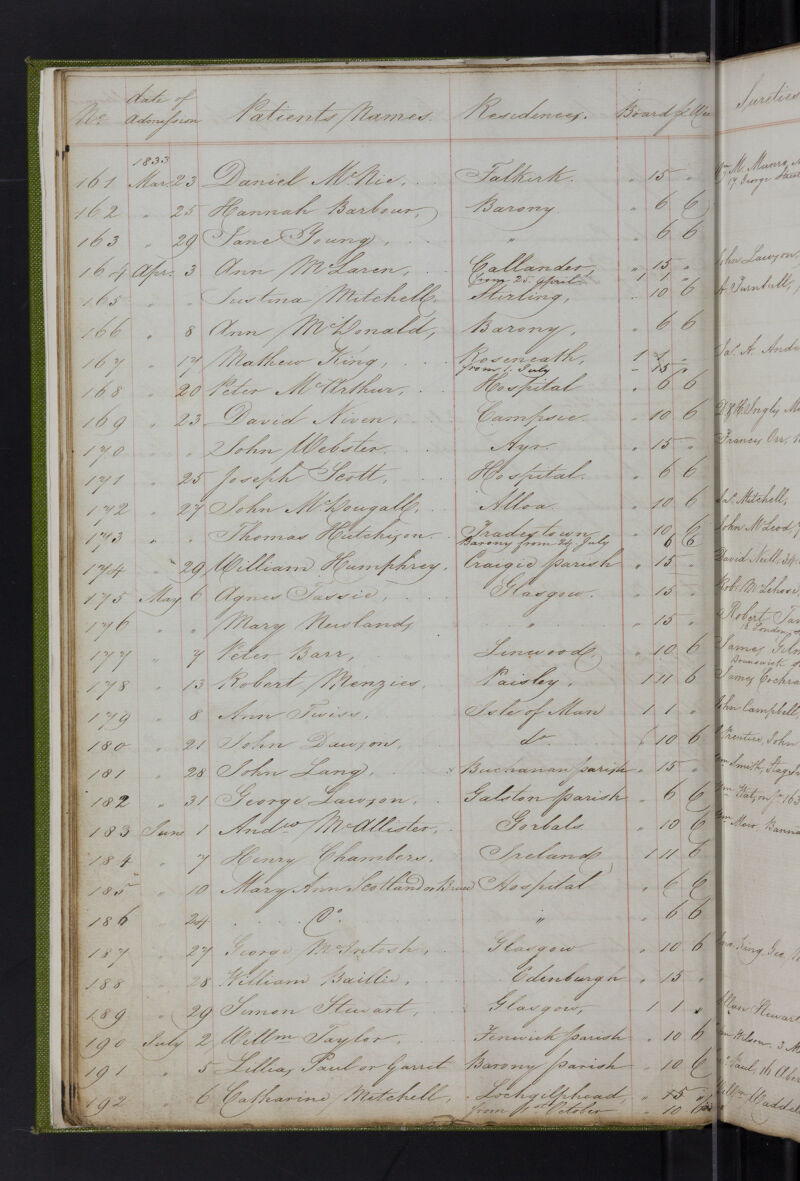 No. date of Admission Patients Names. Residences. Board pr Wee Sureties
1833
161 Mar 23 Daniel McNie, Falkirk. " 15 " M. Munro,
17 George
162 " 25 Hannah Barbour, Barony " 6 6
163 " 29 Jane Young, " " 6 6
164 Apr. 3 Ann McLaren, Callander, " 15 " John Lawson,
from 25 April 1 1 "
165 " " Justina Mitchell, Stirling, " 10 6 A. Turnbull,
166 " 8 Ann McDonald, Barony, " 6 6
167 " 17 Mathew King, Roseneath, 1 1 " Jas. A. Andr
from 1. July " 15 "
168 " 20 Peter McArthur, Hospital " 6 6
169 " 23 David Niven. Campsie. " 10 6 Inglis
170 " " John Webster. Ayr. " 15 " Francis Orr,
171 " 25 Joseph Scott, Hospital. " 6 6
172 " 27 John McDougall. Alloa. " 10 6 Jas. Mitchell,
173 " " Thomas Hutchison. Tradestown " 10 6 John McLeod,
Barony from 24 July 6 6
174 " 29 William Humphrey. Craigie parish " 15 " David Neill. 34
175 May 6 Agnes Tassie, Glasgow. " 15 " Rob. McLehose
176 " " Mary Newland, " " 15 " Robert
18 London
177 " 7 Peter Barr, Linwood " 10 6 James
Brunswick
178 " 13 Robert Menzies, Paisley. 1 11 6 James Cochra
179 " 8 Ann Twiss. Isle of Man 1 1 " John Campbell
180 " 21 John Dawson. Do. " 10 6 Prentice, John
181 " 28 John Lang. Buchanan parish " 15 " Wm Smith,
182 " 31 George Lawson. Galston parish " 6 6 Wm Watson 163
183 June 1 Andw McAllister, Gorbals " 10 6 Wm Muir,
184 " 7 Henry Chambers. Ireland 1 11 6
185 " 10 Mary Ann Scotland or Bruce Hospital " 6 6
186 " 24 Do. " " 6 6
187 " 27 George McIntosh, Glasgow " 10 6 King, Geo.
188 " 28 William Baillie. Edenburgh " 15 "
189 " 29 Simon Stewart, Glasgow, 1 1 " Allan Stewart
190 July 2 Willm Taylor. Fenwick parish " 10 6 Wilson. 3
191 " 5 Lillias Paul or Garret Barony parish " 10 6 Paul, 16
192 " 6 Catharine Mitchell, Lochgilphead, " 15 " Waddel
from 1st October " 10 6